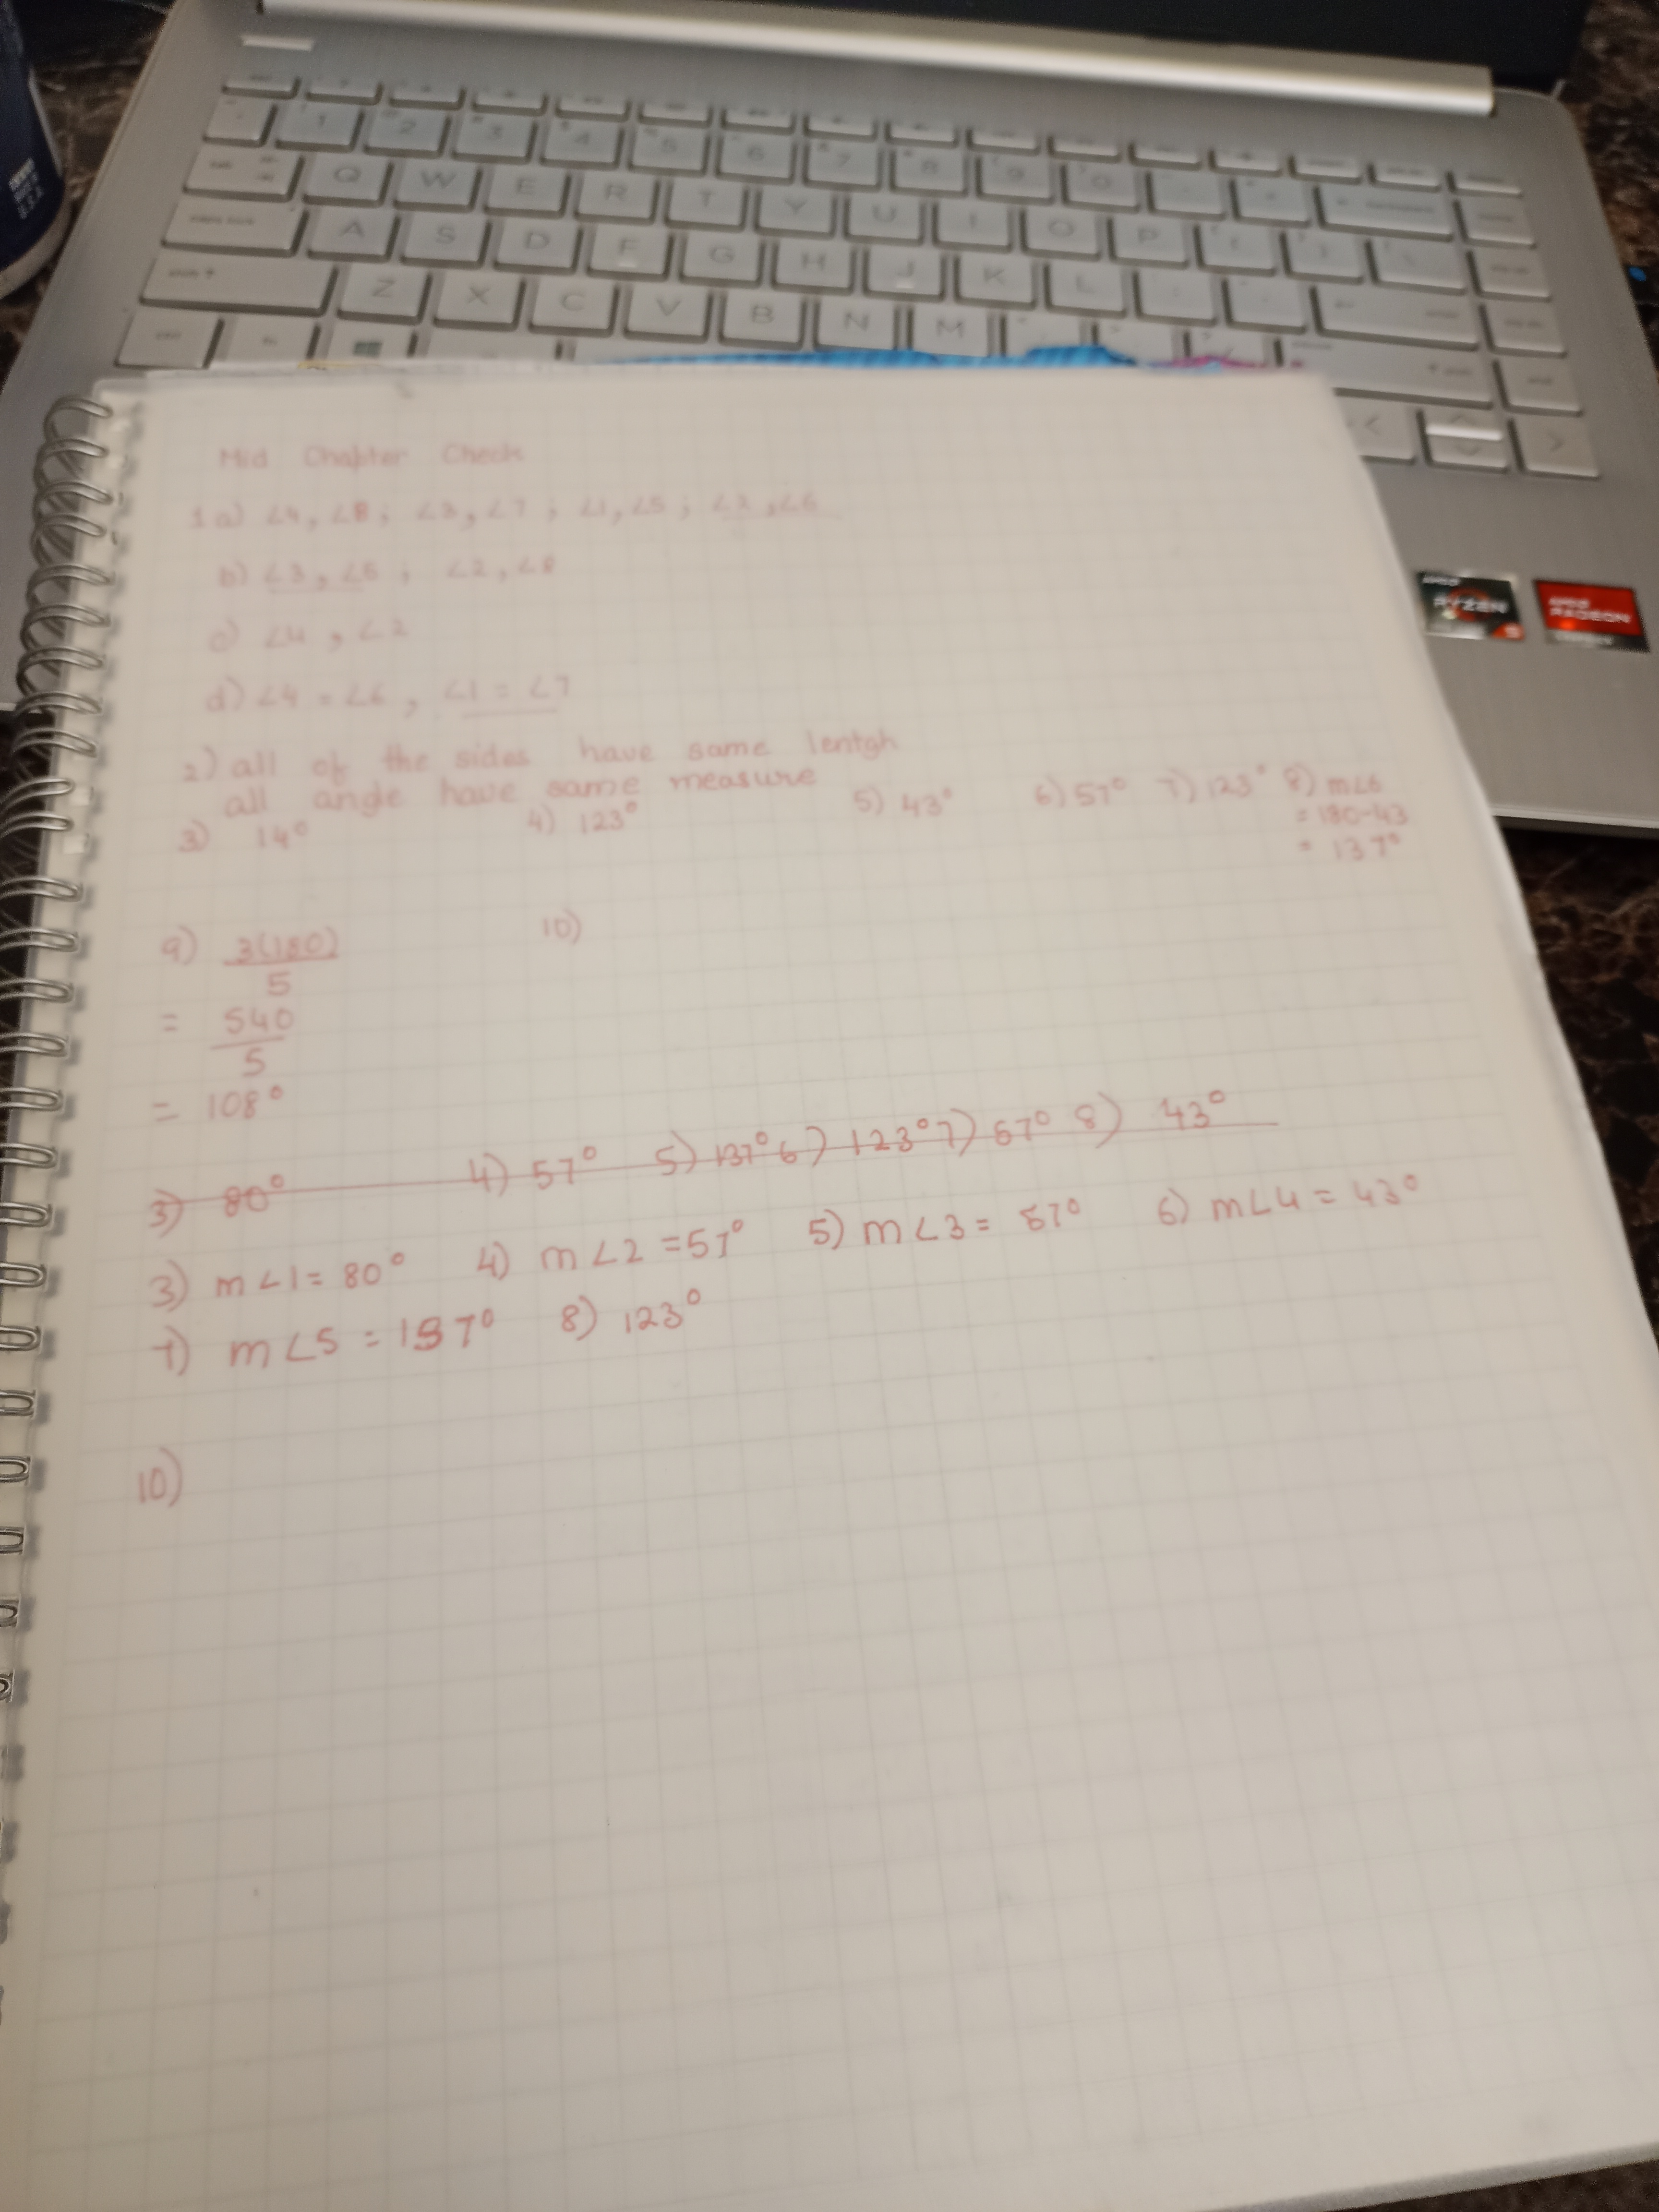 Mid Chapter Check
1 a) ∠4, ∠8 ; ∠3, ∠7 ; ∠1, ∠5 ; ∠2, ∠6
b) ∠3, ∠5 ; ∠2, ∠8
c) ∠4, ∠2
d) ∠4 = ∠6, ∠1 = ∠7
2) all of the sides have same lentgh
all angle have same measure
3) 14° 4) 123° 5) 43° 6) 57° 7) 123° 8) m∠6
= 180-43
= 137°
9) 3(180) 10)
5
= 540
5
= 108°
3) 80° 4) 57° 5) 137° 6) 123° 7) 57° 8) 43°
3) m∠1 = 80° 4) m∠2 = 57° 5) m∠3 = 57° 6) m∠4 = 43°
7) m∠5 = 137° 8) 123°
10)
1 2 3 4 5 6 7 8 9 0
Q W E R T Y U I O P
A S D F G H J K L
Z X C V B N M
U.S.A
RYZEN
RADEON